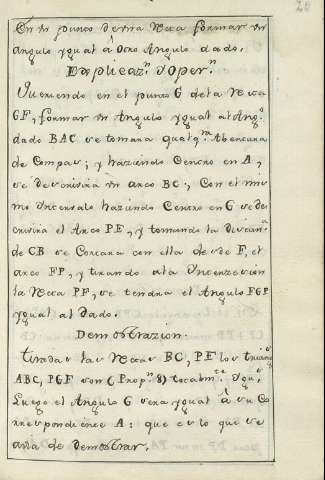 20
En un punto de una Recta formar un
Angulo ygual â Otro Angulo dado.
Explicaz.n Y Oper.n
Queriendo en el punto G dela Recta
GF, formar un Angulo ygual al Ang.o
dado BAC se tomara qualq.ra Abertura
de Compas; y haziendo Centro en A,
se descrivirá un arco BC; Con el mis
mo intervalo haziendo Centro en G se des
crivira el Arco PF, y tomando la distan.a
de CB se Cortara con ella desde F, el
arco FP, y tirando ala Interseccion
la Recta PF, se tendra el Angulo FGP
ygual al dado.
Demostrazion.
Tiradas las Rectas BC, PF los triang.s
ABC, PGF son (Prop.n 8) totalm.te Ygu.s
Luego el Angulo G sera ygual â su Co
rrespondiente A: que es lo que se
avia de Demostrar.